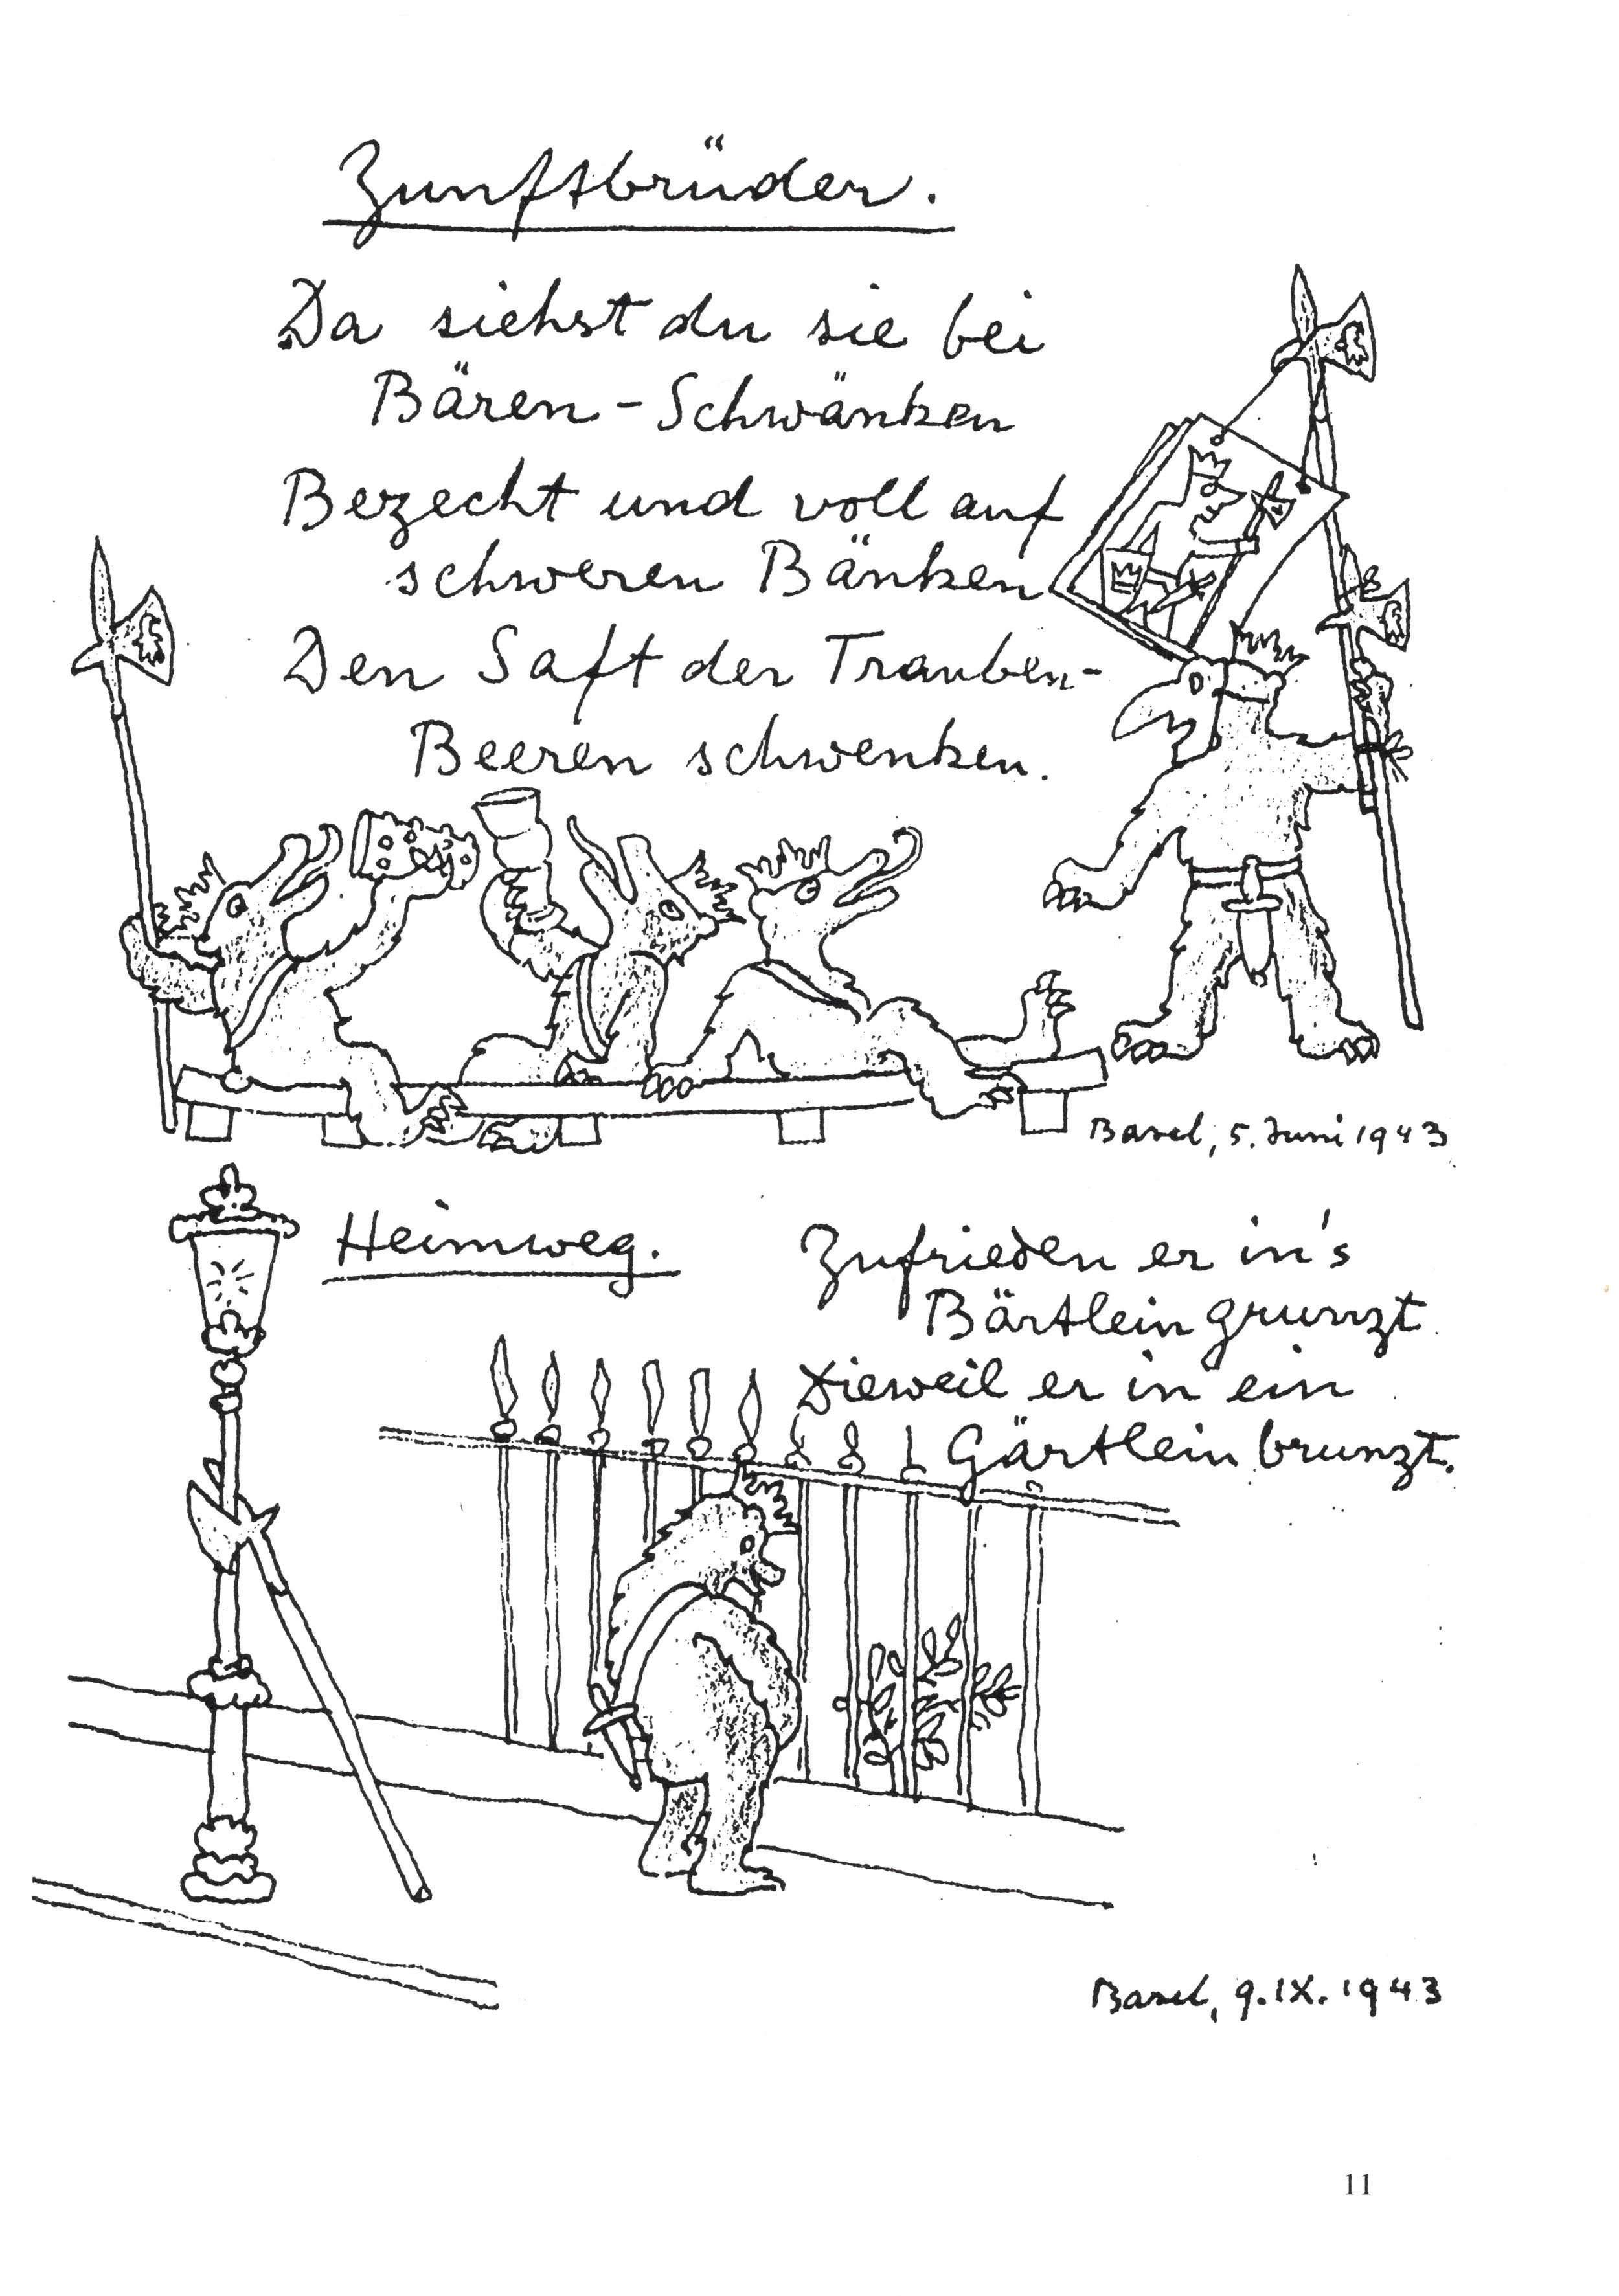 Zunftbrüder.
Da siehst du sie bei
Bären-Schwänken
Bezecht und voll auf
schweren Bänken
Den Saft der Trauben-
Beeren schwenken.
Basel, 5. Juni 1943
Heimweg.
Zufrieden er in's
Bärtlein grunzt
Dieweil er in ein
Gärtlein brunzt.
Basel, 9. IX. 1943
11